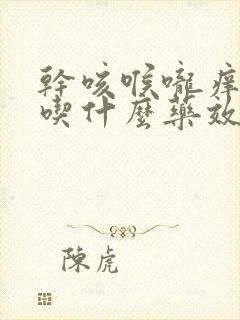 幹咳喉嚨痒
喫什麼藥效
陳虎